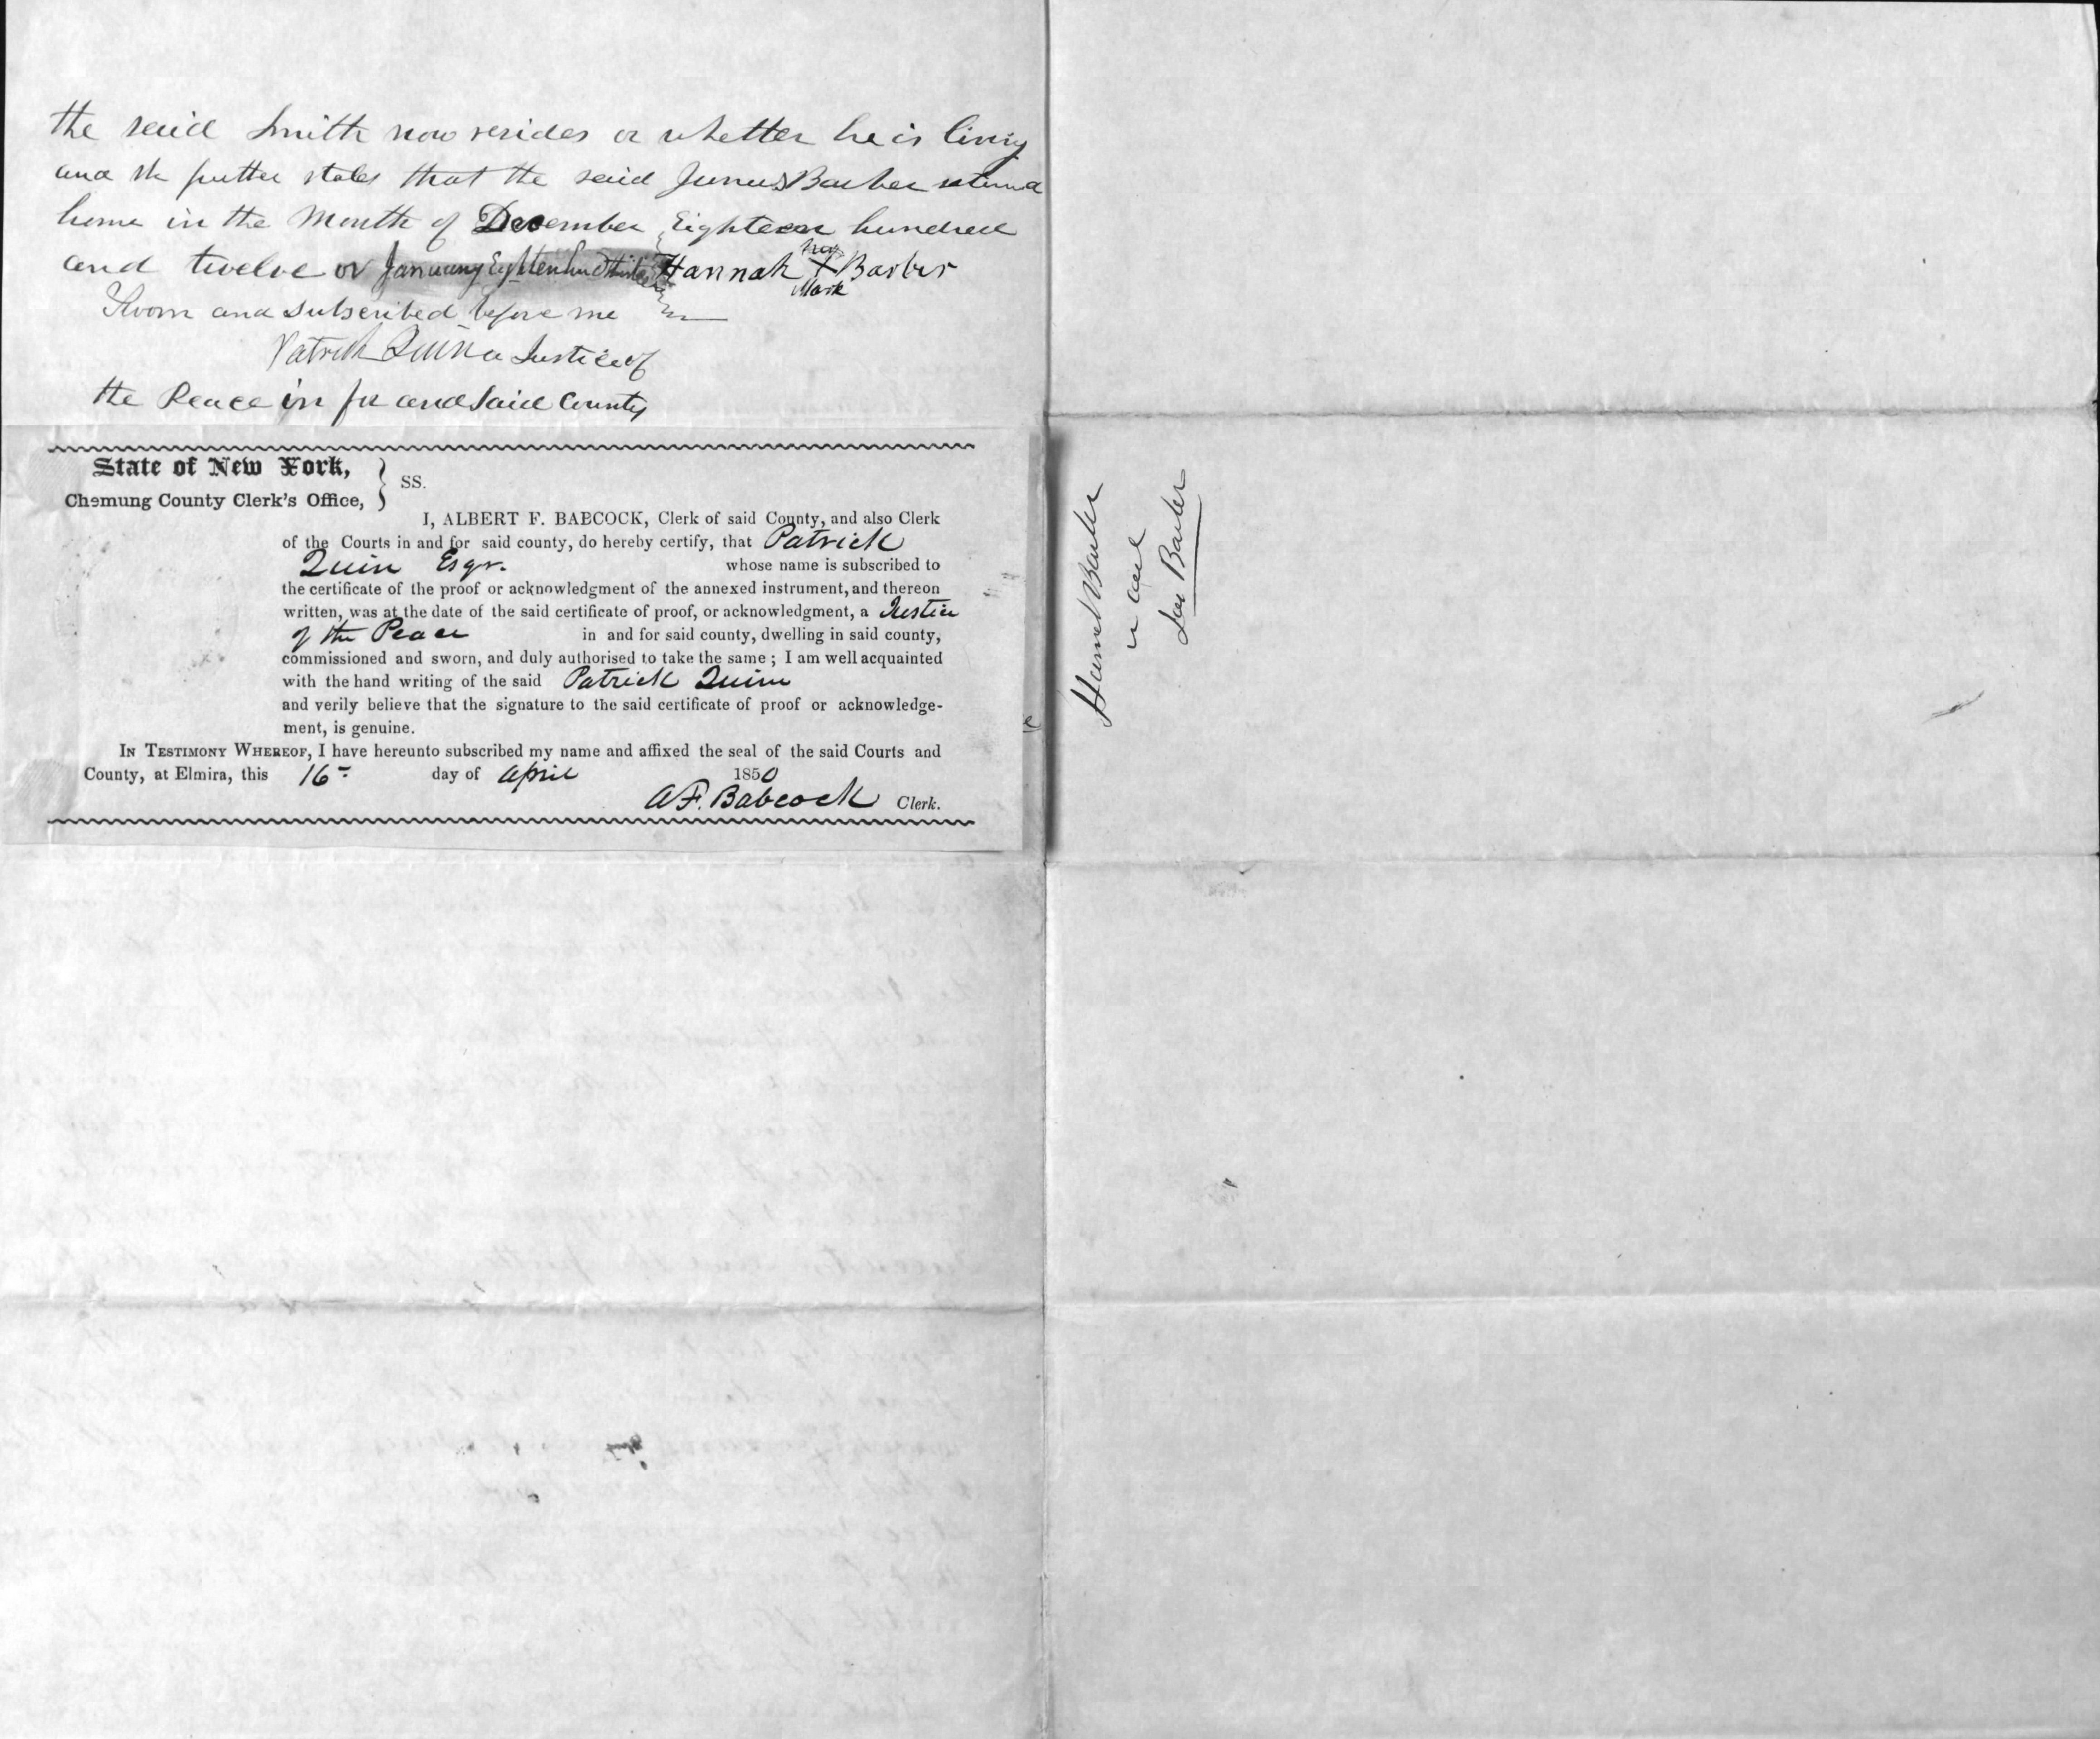 the said Smith now resides or whether he is living
and she further states that the said Junus Barber returned
home in the Month of December Eighteen hundred
and twelve or January Eighteen hund thirteen Hannah her X Mark Barber
Sworn and subscribed before me
Patrick Quin a Justice of
the Peace in for and Said County
State of New York,
Chemung County Clerk's Office, } SS.
I, ALBERT F. BABCOCK, Clerk of said County, and also Clerk
of the Courts in and for said county, do hereby certify, that Patrick
Quin Esqr. whose name is subscribed to
the certificate of the proof or acknowledgment of the annexed instrument, and thereon
written, was at the date of the said certificate of proof, or acknowledgment, a Justice
of the Peace in and for said county, dwelling in said county,
commissioned and sworn, and duly authorised to take the same; I am well acquainted
with the hand writing of the said Patrick Quinn
and verily believe that the signature to the said certificate of proof or acknowledge-
ment, is genuine.
IN TESTIMONY WHEREOF, I have hereunto subscribed my name and affixed the seal of the said Courts and
County, at Elmira, this 16- day of April 1850
A.F. Babcock Clerk.
Barber
Barber